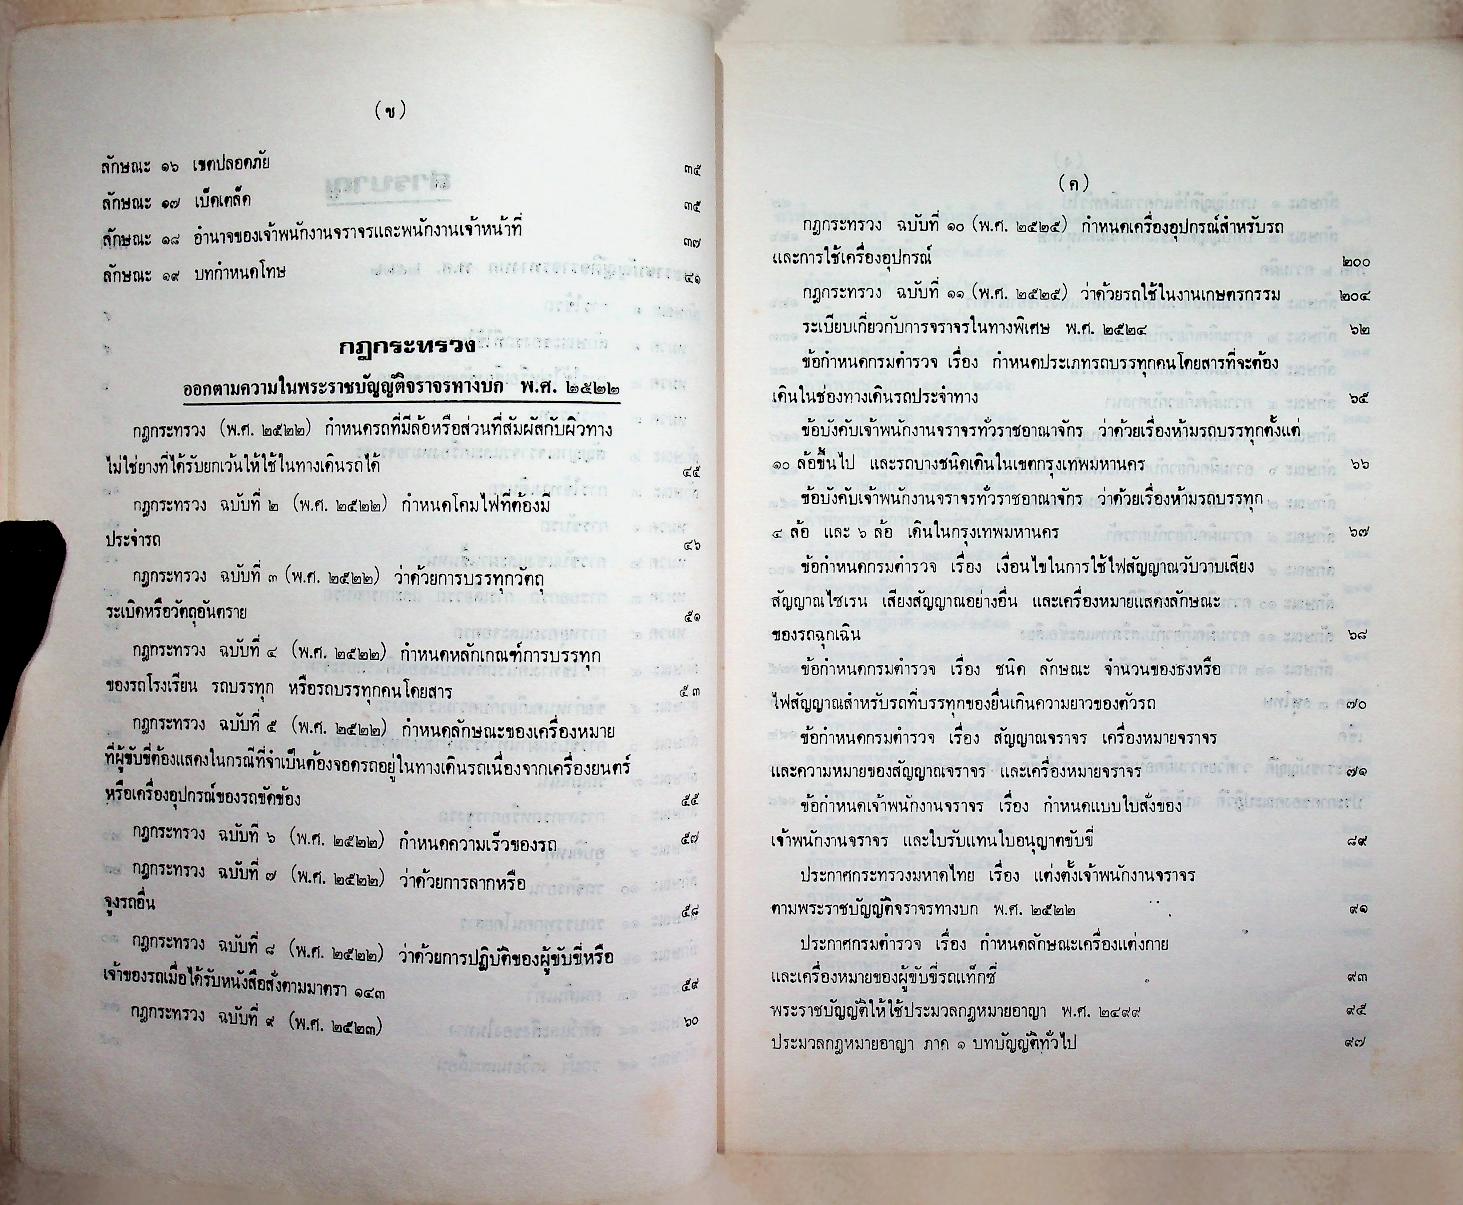 (ข)
ลักษณะ ๑๖ เขตปลอดภัย ๓๕
ลักษณะ ๑๗ เบ็ดเตล็ด ๓๕
ลักษณะ ๑๘ อำนาจของเจ้าพนักงานจราจรและพนักงานเจ้าหน้าที่ ๓๗
ลักษณะ ๑๙ บทกำหนดโทษ ๔๑
กฎกระทรวง
ออกตามความในพระราชบัญญัติจราจรทางบก พ.ศ. ๒๕๒๒
กฎกระทรวง (พ.ศ. ๒๕๒๒) กำหนดรถที่มีล้อหรือส่วนที่สัมผัสกับผิวทาง
ไม่ใช่ยางที่ได้รับยกเว้นให้ใช้ในทางเดินรถได้ ๔๕
กฎกระทรวง ฉบับที่ ๒ (พ.ศ. ๒๕๒๒) กำหนดโคมไฟที่ต้องมี
ประจำรถ ๔๖
กฎกระทรวง ฉบับที่ ๓ (พ.ศ. ๒๕๒๒) ว่าด้วยการบรรทุกวัตถุ
ระเบิดหรือวัตถุอันตราย ๕๑
กฎกระทรวง ฉบับที่ ๔ (พ.ศ. ๒๕๒๒) กำหนดหลักเกณฑ์การบรรทุก
ของรถโรงเรียน รถบรรทุก หรือรถบรรทุกคนโดยสาร ๕๓
กฎกระทรวง ฉบับที่ ๕ (พ.ศ. ๒๕๒๒) กำหนดลักษณะของเครื่องหมาย
ที่ผู้ขับขี่ต้องแสดงในกรณีที่จำเป็นต้องจอดรถอยู่ในทางเดินรถเนื่องจากเครื่องยนตร์
หรือเครื่องอุปกรณ์ของรถขัดข้อง ๕๕
กฎกระทรวง ฉบับที่ ๖ (พ.ศ. ๒๕๒๒) กำหนดความเร็วของรถ ๕๗
กฎกระทรวง ฉบับที่ ๗ (พ.ศ. ๒๕๒๒) ว่าด้วยการลากหรือ
จูงรถอื่น ๕๘
กฎกระทรวง ฉบับที่ ๘ (พ.ศ. ๒๕๒๒) ว่าด้วยการปฏิบัติของผู้ขับขี่หรือ
เจ้าของรถเมื่อได้รับหนังสือสั่งตามมาตรา ๑๔๓ ๕๙
กฎกระทรวง ฉบับที่ ๙ (พ.ศ. ๒๕๒๓) ๖๐
(ค)
กฎกระทรวง ฉบับที่ ๑๐ (พ.ศ. ๒๕๒๕) กำหนดเครื่องอุปกรณ์สำหรับรถ
และการใช้เครื่องอุปกรณ์ ๒๐๐
กฎกระทรวง ฉบับที่ ๑๑ (พ.ศ. ๒๕๒๕) ว่าด้วยรถใช้ในงานเกษตรกรรม ๒๐๔
ระเบียบเกี่ยวกับการจราจรในทางพิเศษ พ.ศ. ๒๕๒๔ ๖๒
ข้อกำหนดกรมตำรวจ เรื่อง กำหนดประเภทรถบรรทุกคนโดยสารที่จะต้อง
เดินในช่องทางเดินรถประจำทาง ๖๕
ข้อบังคับเจ้าพนักงานจราจรทั่วราชอาณาจักร ว่าด้วยเรื่องห้ามรถบรรทุกตั้งแต่
๑๐ ล้อขึ้นไป และรถบางชนิดเดินในเขตกรุงเทพมหานคร ๖๖
ข้อบังคับเจ้าพนักงานจราจรทั่วราชอาณาจักร ว่าด้วยเรื่องห้ามรถบรรทุก
๔ ล้อ และ ๖ ล้อ เดินในกรุงเทพมหานคร ๖๗
ข้อกำหนดกรมตำรวจ เรื่อง เงื่อนไขในการใช้ไฟสัญญาณวับวาบเสียง
สัญญาณไซเรน เสียงสัญญาณอย่างอื่น และเครื่องหมายแสดงลักษณะ
ของรถฉุกเฉิน ๖๘
ข้อกำหนดกรมตำรวจ เรื่อง ชนิด ลักษณะ จำนวนของธงหรือ
ไฟสัญญาณสำหรับรถที่บรรทุกของยื่นเกินความยาวของตัวรถ ๗๐
ข้อกำหนดกรมตำรวจ เรื่อง สัญญาณจราจร เครื่องหมายจราจร
และความหมายของสัญญาณจราจร และเครื่องหมายจราจร ๗๑
ข้อกำหนดเจ้าพนักงานจราจร เรื่อง กำหนดแบบใบสั่งของ
เจ้าพนักงานจราจร และใบรับแทนใบอนุญาตขับขี่ ๘๙
ประกาศกระทรวงมหาดไทย เรื่อง แต่งตั้งเจ้าพนักงานจราจร
ตามพระราชบัญญัติจราจรทางบก พ.ศ. ๒๕๒๒ ๙๑
ประกาศกรมตำรวจ เรื่อง กำหนดลักษณะเครื่องแต่งกาย
และเครื่องหมายของผู้ขับขี่รถแท็กซี่ ๙๓
พระราชบัญญัติให้ใช้ประมวลกฎหมายอาญา พ.ศ. ๒๔๙๙ ๙๕
ประมวลกฎหมายอาญา ภาค ๑ บทบัญญัติทั่วไป ๙๗